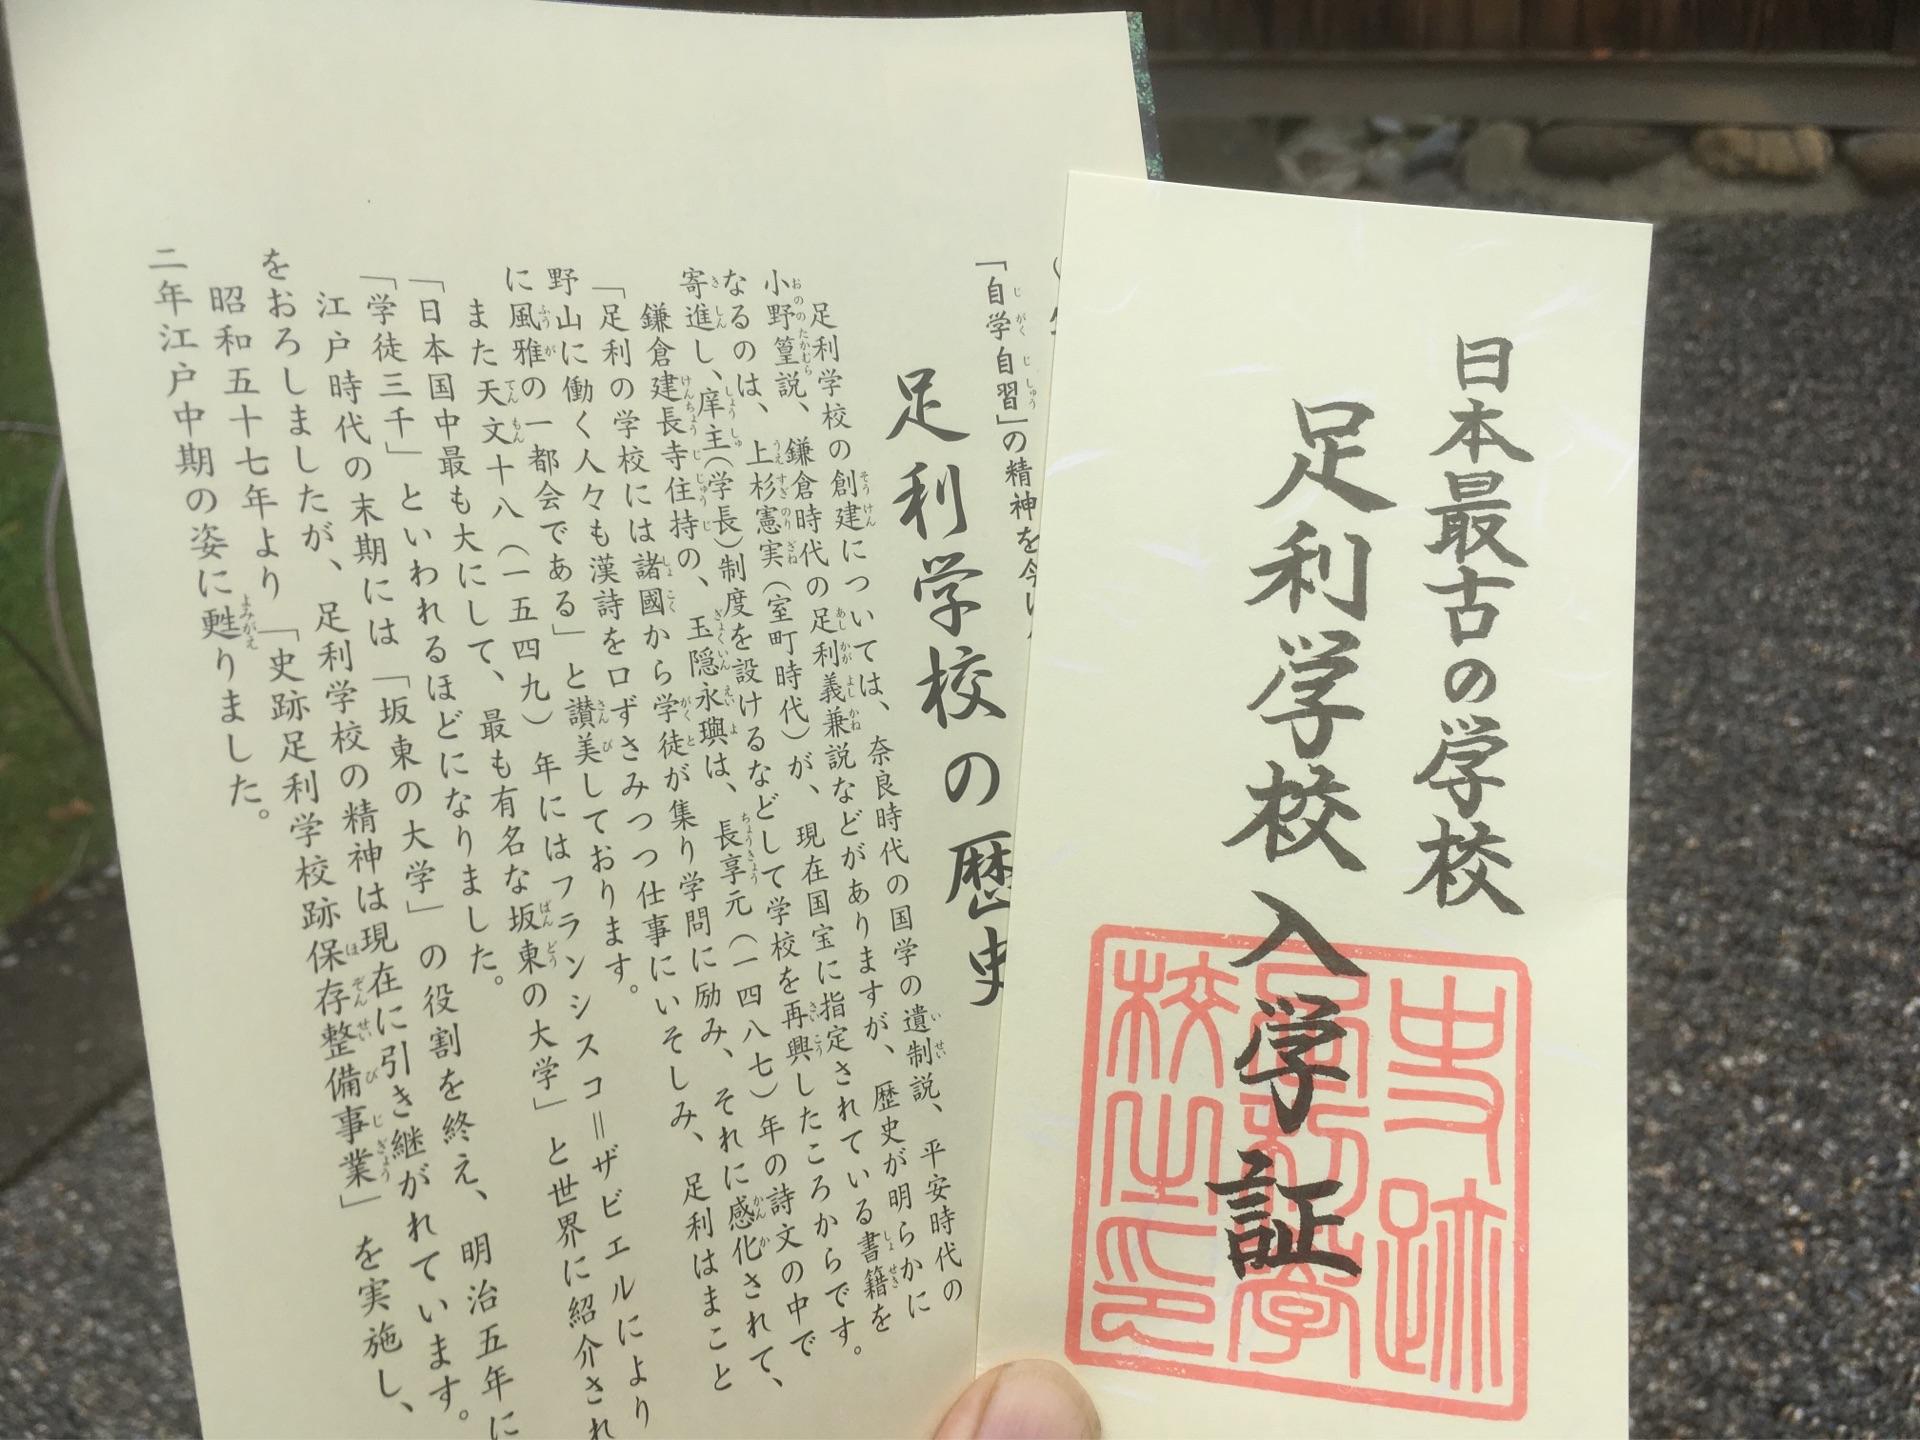 日本最古の学校
足利学校入学証
史跡
足利学
校之印
「自学自習」の精神を今
足利学校の歴史
足利学校の創建については、奈良時代の国学の遺制説、平安時代の
小野篁説、鎌倉時代の足利義兼説などがありますが、歴史が明らかに
なるのは、上杉憲実(室町時代)が、現在国宝に指定されている書籍を
寄進し、庠主(学長)制度を設けるなどして学校を再興したころからです。
鎌倉建長寺住持の、玉隠永璵は、長享元(一四八七)年の詩文の中で
「足利の学校には諸國から学徒が集り学問に励み、それに感化されて、
野山に働く人々も漢詩を口ずさみつつ仕事にいそしみ、足利はまこと
に風雅の一都会である」と讃美しております。
また天文十八(一五四九)年にはフランシスコ=ザビエルにより
「日本国中最も大にして、最も有名な坂東の大学」と世界に紹介され
「学徒三千」といわれるほどになりました。
江戸時代の末期には「坂東の大学」の役割を終え、明治五年に
をおろしましたが、足利学校の精神は現在に引き継がれています。
昭和五十七年より「史跡足利学校跡保存整備事業」を実施し、
二年江戸中期の姿に甦りました。